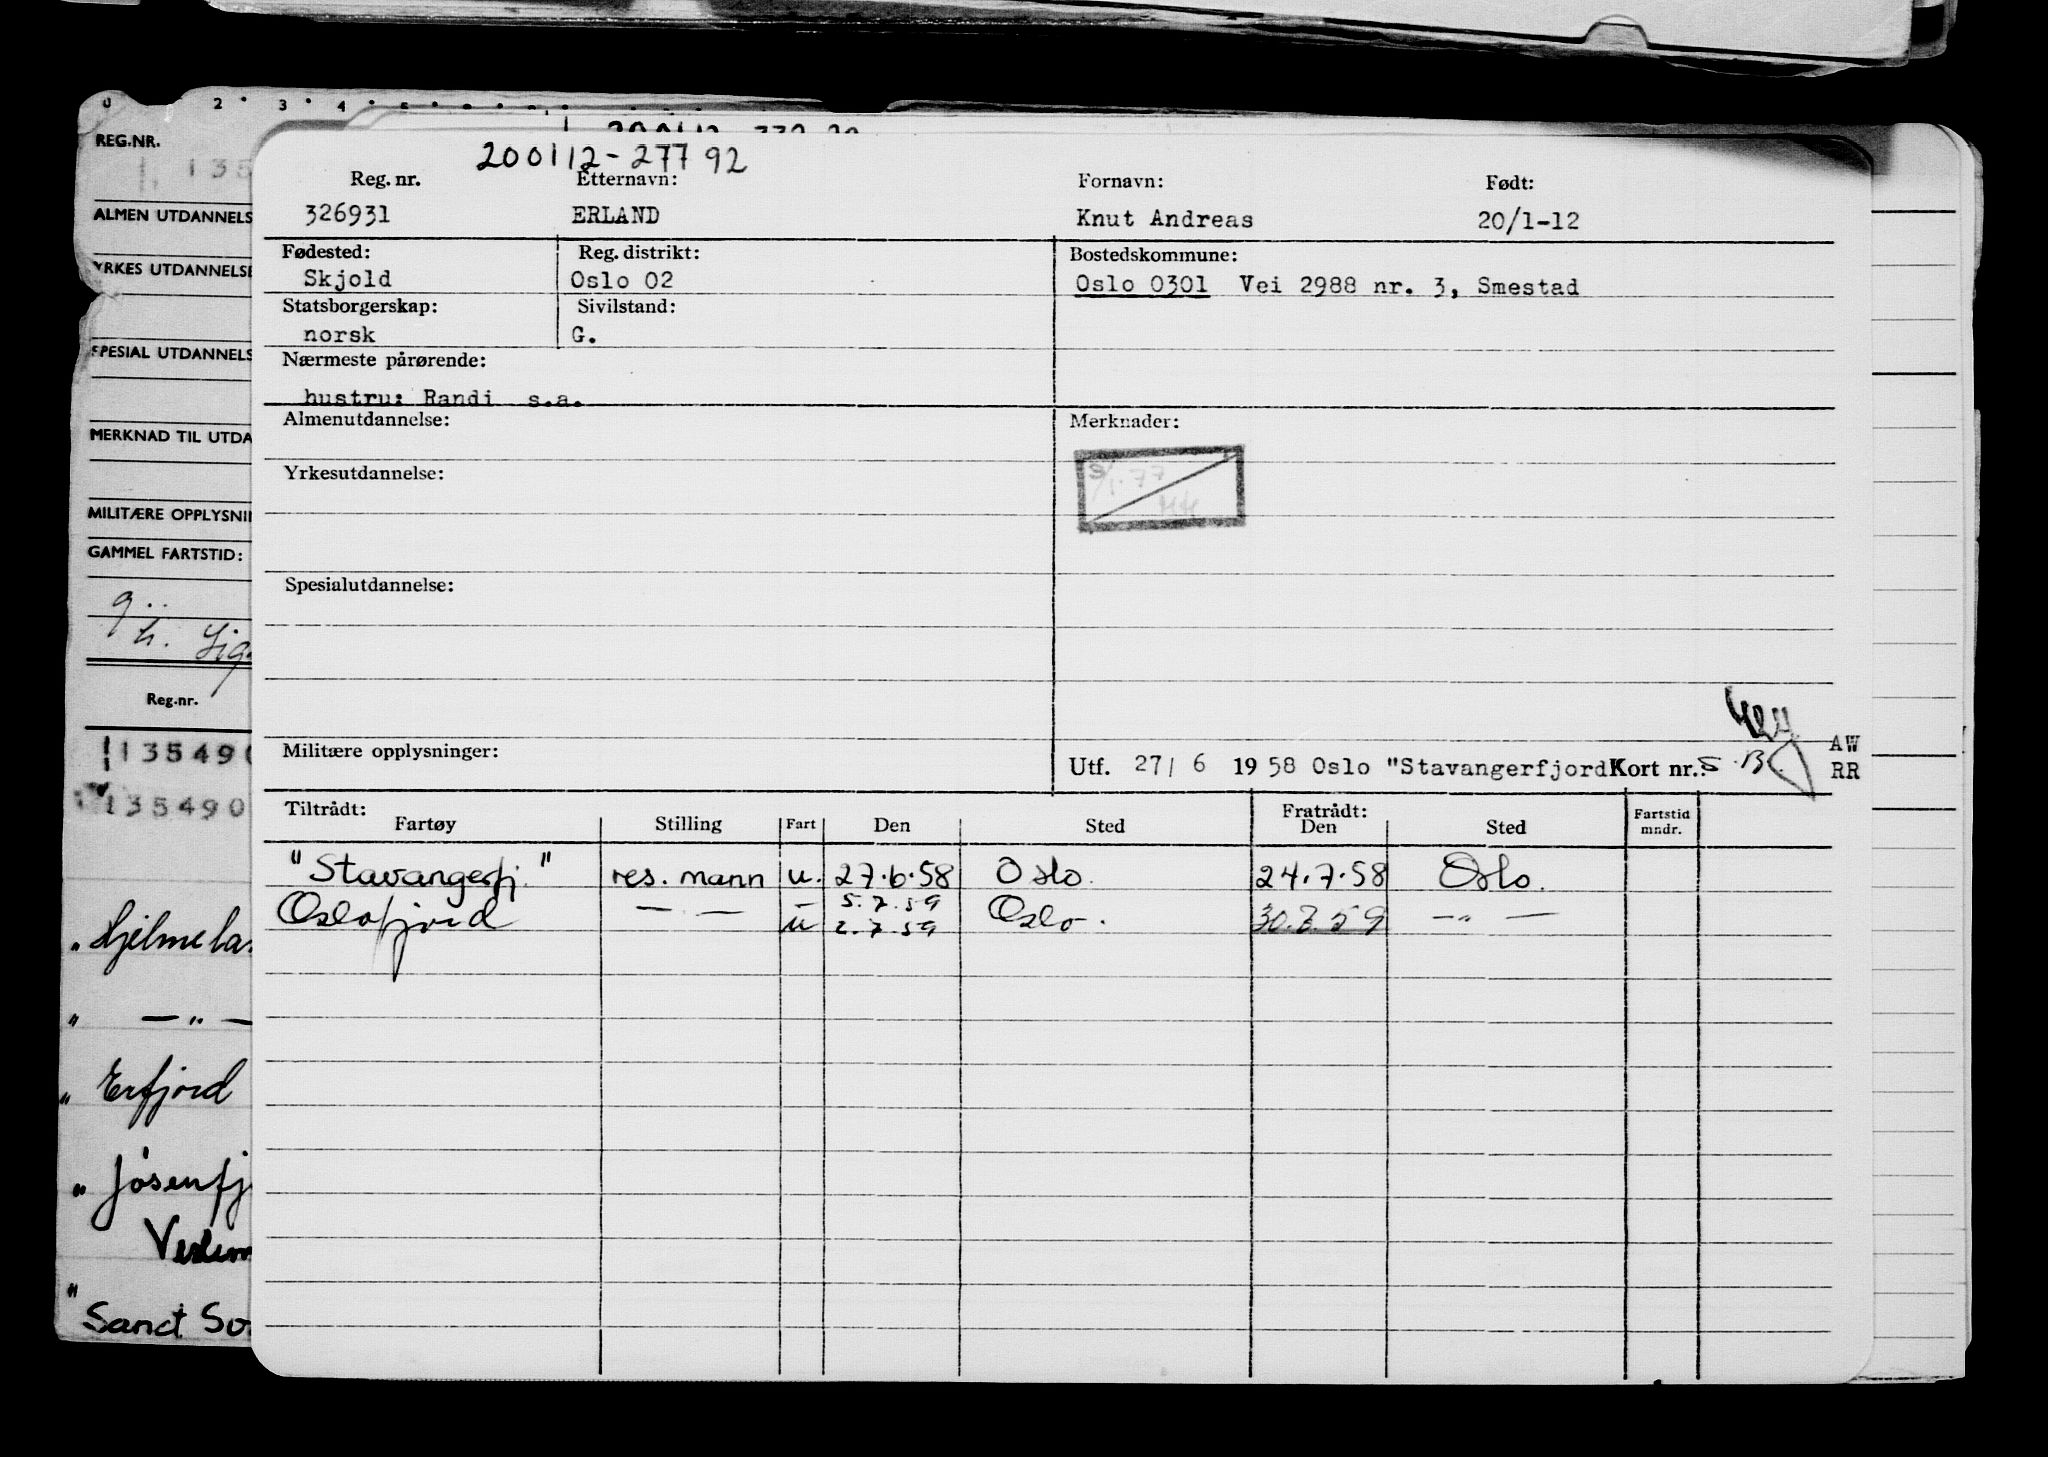 0 2 • 3 • 4 • 5
REG.NR.
135
ALMEN UTDANNELS
YRKES UTDANNELSE
SPESIAL UTDANNELS
MERKNAD TIL UTDA
MILITÆRE OPPLYSNI
GAMMEL FARTSTID:
Reg.nr.
135490
135490
"Hjelmela
" — " —
" Erfjord
" Jøsenfj
Sanct Sv
200112-27792
Reg. nr. Etternavn: Fornavn: Født:
326931 ERLAND Knut Andreas 20/1-12
Fødested: Reg. distrikt: Bostedskommune:
Skjold Oslo 02 Oslo 0301 Vei 2988 nr. 3, Smestad
Statsborgerskap: Sivilstand:
norsk G.
Nærmeste pårørende:
hustru: Randi s.a.
Almenutdannelse: Merknader:
Yrkesutdannelse:
Spesialutdannelse:
Militære opplysninger:
Utf. 27/ 6 1958 Oslo "Stavangerfjord" Kort nr.: AW
RR
Tiltrådt: Fratrådt:
Fartøy Stilling Fart Den Sted Den Sted Fartstid mndr.
"Stavangerfj." res. mann u. 27.6.58 Oslo. 24.7.58 Oslo.
5.7.59
Oslofjord — . — u 2.7.59 Oslo. 30.7.59 — " —